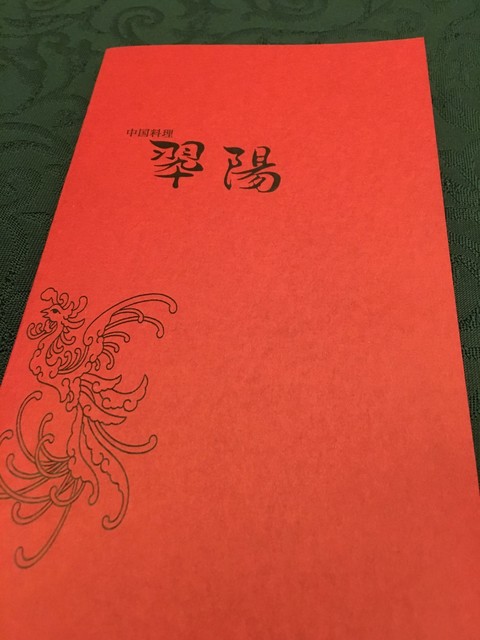 中国料理
翠陽